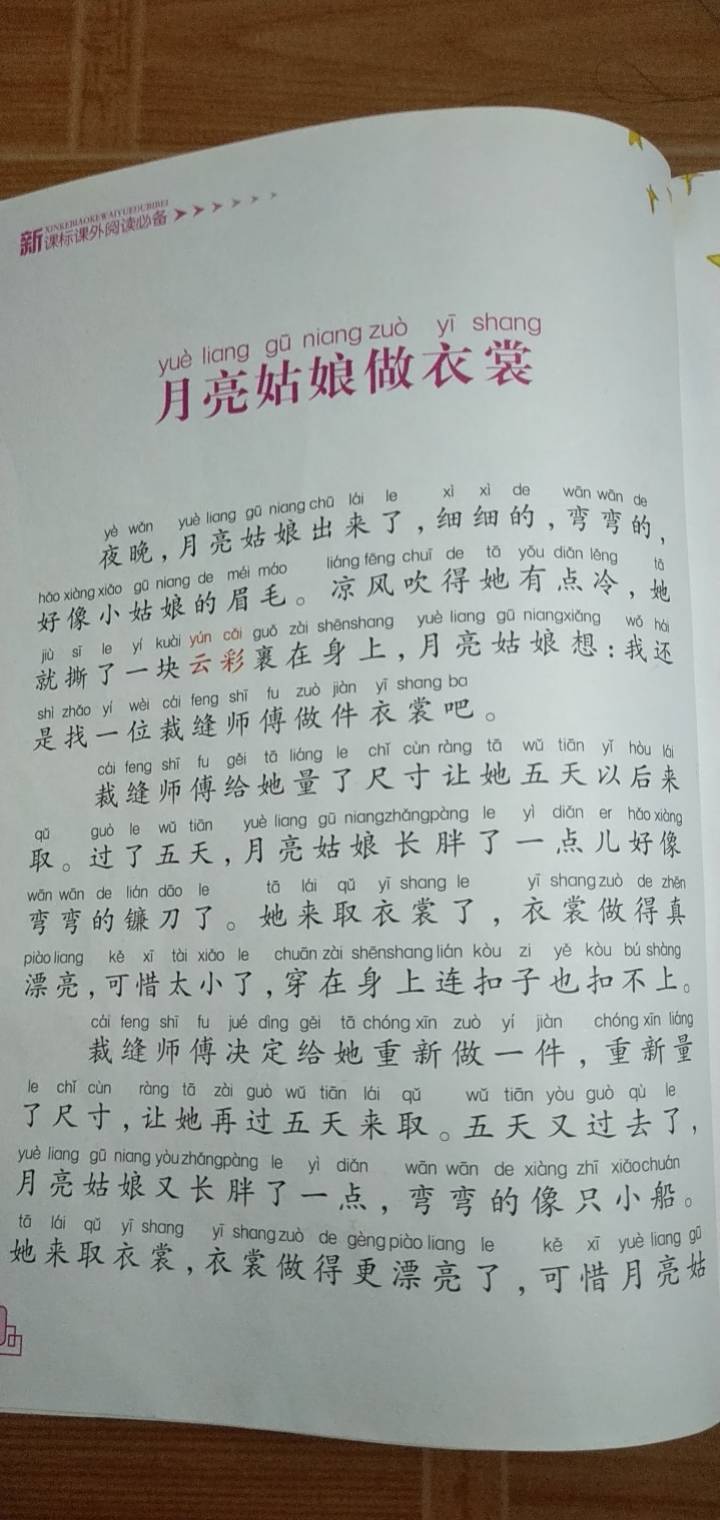 XINKEBIAOKEWAIYUEDUBIBEI
新课标课外阅读必备
yuè liang gū niang zuò yī shang
月亮姑娘做衣裳
yè wǎn yuè liang gū niang chū lái le xì xì de wān wān de
夜晚，月亮姑娘出来了，细细的，弯弯的，
hǎo xiàng xiǎo gū niang de méi máo liáng fēng chuī de tā yǒu diǎn lěng tā
好像小姑娘的眉毛。凉风吹得她有点冷，她
jiù sī le yí kuài yún cǎi guǒ zài shēnshang yuè liang gū niangxiǎng wǒ hái
就撕了一块云彩裹在身上，月亮姑娘想：我还
shì zhǎo yí wèi cái feng shī fu zuò jiàn yī shang ba
是找一位裁缝师傅做件衣裳吧。
cái feng shī fu gěi tā liáng le chǐ cùn ràng tā wǔ tiān yǐ hòu lái
裁缝师傅给她量了尺寸让她五天以后来
qǔ guò le wǔ tiān yuè liang gū niangzhǎngpàng le yì diǎn er hǎo xiàng
取。过了五天，月亮姑娘长胖了一点儿好像
wān wān de lián dāo le tā lái qǔ yī shang le yī shang zuò de zhēn
弯弯的镰刀了。她来取衣裳了，衣裳做得真
piào liang kě xī tài xiǎo le chuān zài shēnshang lián kòu zi yě kòu bú shàng
漂亮，可惜太小了，穿在身上连扣子也扣不上。
cái feng shī fu jué dìng gěi tā chóng xīn zuò yí jiàn chóng xīn liáng
裁缝师傅决定给她重新做一件，重新量
le chǐ cùn ràng tā zài guò wǔ tiān lái qǔ wǔ tiān yòu guò qù le
了尺寸，让她再过五天来取。五天又过去了，
yuè liang gū niang yòu zhǎngpàng le yì diǎn wān wān de xiàng zhī xiǎochuán
月亮姑娘又长胖了一点，弯弯的像只小船。
tā lái qǔ yī shang yī shang zuò de gèng piào liang le kě xī yuè liang gū
她来取衣裳，衣裳做得更漂亮了，可惜月亮姑